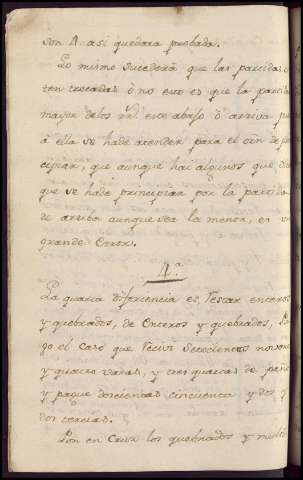 son A. asi quedara probada.
Lo mismo sucederà que las partidas
ten trocadas ò no esto es que la partida
mayor este abajo ò arriva
à ella se hade atender para el de
cipiar, que aunque hai algunos que
que se hade principiar por la partida
de arriba aunque sea la menor, es
grande Error.
4.a
La quarta diferencia es, restar enteros
y quebrados, de Enteros y quebrados,
go el Caso que recivi setecientas noventa
y quatro varas, y tres quartas de paño
y pague doscientas cincuenta y dos y
dos tercias.
Pon en Cruz los quebrados y